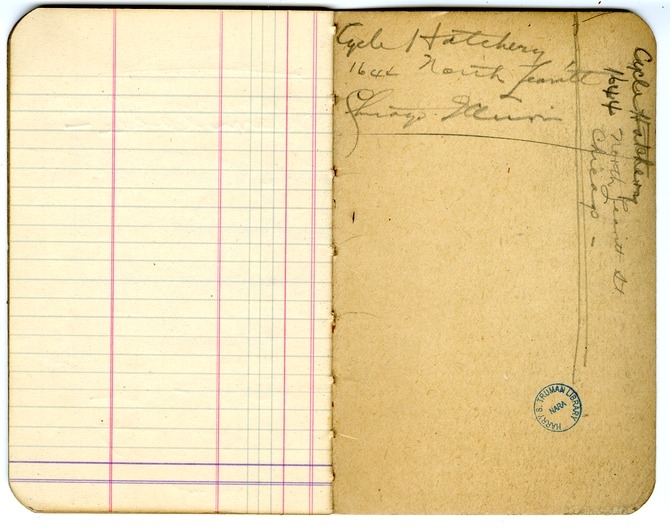 Cycle Hatchery
1644 North Leavitt
Chicago Illinois
Cycle Hatchery
1644 North Leavitt St
Chicago -
HARRY S. TRUMAN LIBRARY
NARA